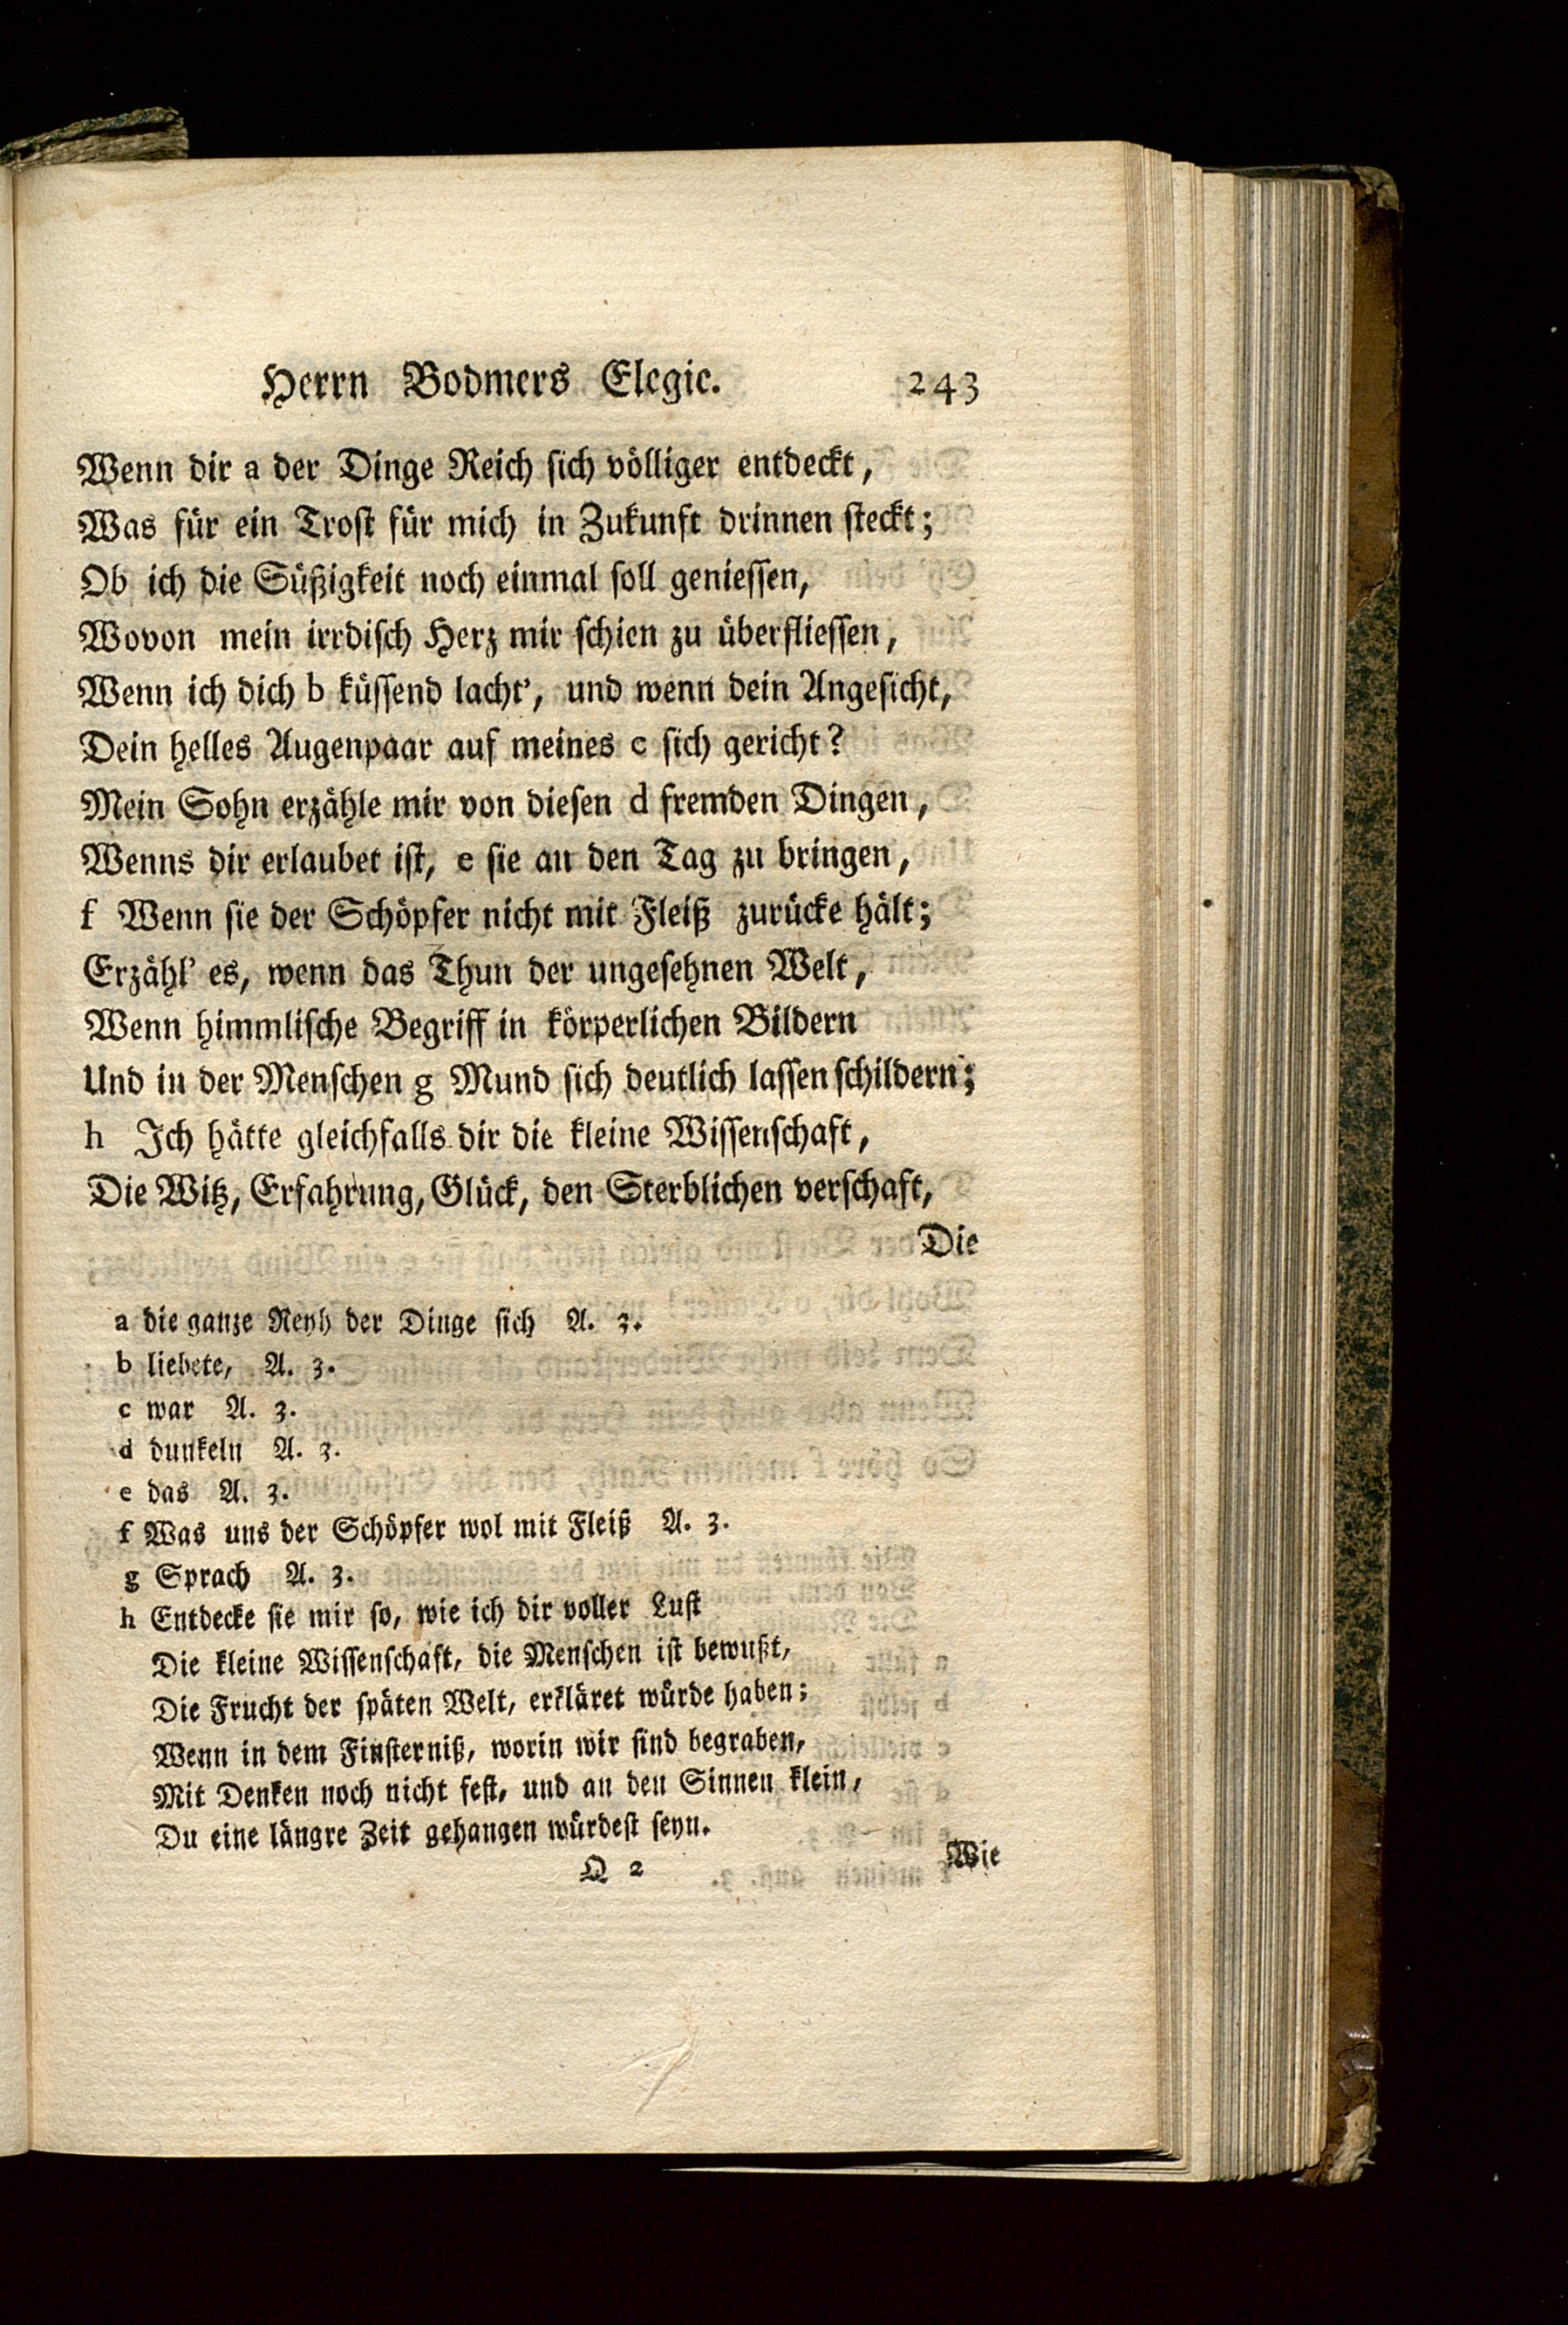 Herrn Bodmers Elegie. 243
Wenn dir a der Dinge Reich sich völliger entdeckt,
Was für ein Trost für mich in Zukunft drinnen steckt;
Ob ich die Süßigkeit noch einmal soll geniessen,
Wovon mein irrdisch Herz mir schien zu überfliessen,
Wenn ich dich b küssend lacht', und wenn dein Angesicht,
Dein helles Augenpaar auf meines c sich gericht?
Mein Sohn erzähle mir von diesen d fremden Dingen,
Wenns dir erlaubet ist, e sie an den Tag zu bringen,
f Wenn sie der Schöpfer nicht mit Fleiß zurücke hält;
Erzähl' es, wenn das Thun der ungesehnen Welt,
Wenn himmlische Begriff in körperlichen Bildern
Und in der Menschen g Mund sich deutlich lassen schildern;
h Ich hätte gleichfalls dir die kleine Wissenschaft,
Die Witz, Erfahrung, Glück, den Sterblichen verschaft,
Die
a die ganze Reyh der Dinge sich A. 3.
b liebete, A. 3.
c war A. 3.
d dunkeln A. 3.
e das A. 3.
f Was uns der Schöpfer wol mit Fleiß A. 3.
g Sprach A. 3.
h Entdecke sie mir so, wie ich dir voller Lust
Die kleine Wissenschaft, die Menschen ist bewußt,
Die Frucht der späten Welt, erkläret würde haben;
Wenn in dem Finsterniß, worin wir sind begraben,
Mit Denken noch nicht fest, und an den Sinnen klein,
Du eine längre Zeit gehangen würdest seyn.
Q 2 Wie